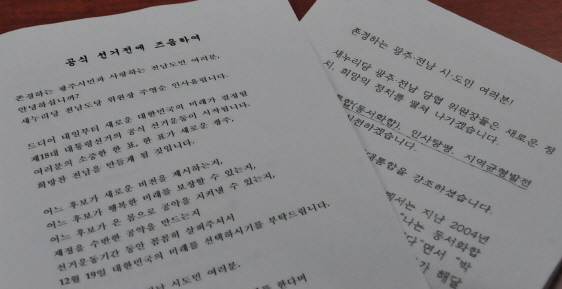 공식 선거전에 즈음하여
존경하는 광주시민과 사랑하는 전남도민 여러분,
안녕하십니까?
새누리당 전남도당 위원장 주영순 인사올립니다.
드디어 내일부터 새로운 대한민국의 미래가 결정될
제18대 대통령선거의 공식 선거운동이 시작됩니다.
여러분의 소중한 한 표, 한 표가 새로운 광주,
희망찬 전남을 만들게 될 것입니다.
어느 후보가 새로운 비전을 제시하는지,
어느 후보가 행복한 미래를 보장할 수 있는지,
어느 후보가 온 몸으로 공약을 지켜낼 수 있는지,
재정을 수반한 공약을 만드는지
선거운동기간 동안 꼼꼼히 살펴주셔서
12월 19일 대한민국의 미래를 선택하시기를 부탁드립니다.
전남 시도민 여러분,
를 다한다며
존경하는 광주·전남 시·도민 여러분!
새누리당 광주·전남 당협 위원장들은 새로운 정
치, 희망의 정치를 펼쳐 나가겠습니다.
합(동서화합) 인사탕평, 지역균형발전
실천하겠습니다.
대통합을 강조하셨습니다.
에서는 지난 2004년
"나는 동서화합
다"면서 "박
가 해달